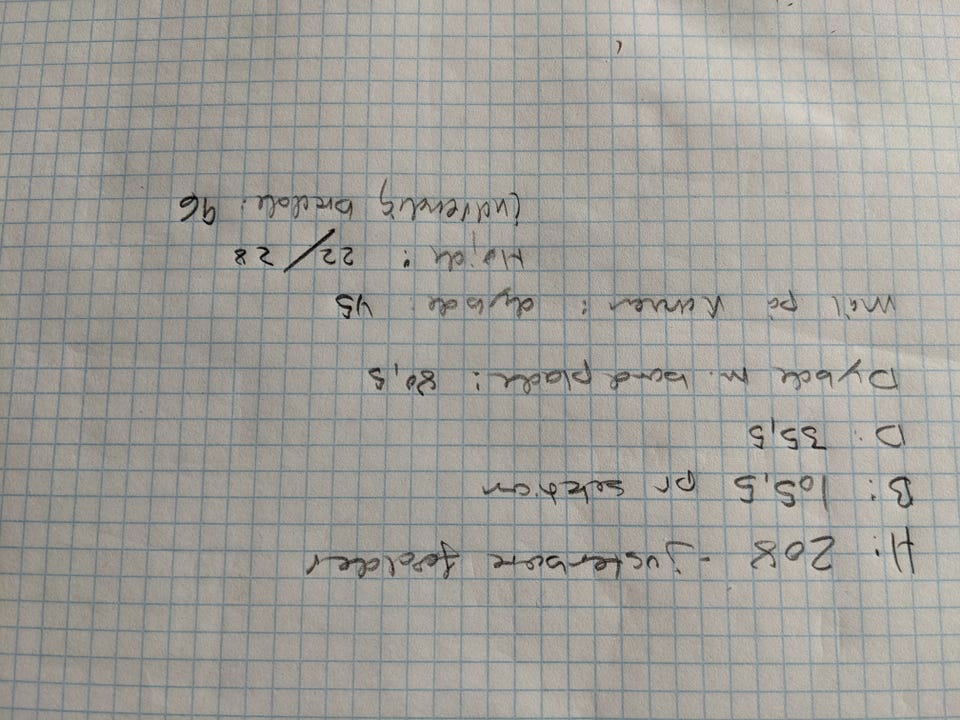 H: 208 - justerbare fødder
B: 105,5 pr sektion
D: 35,5
Dybde m. bord plade: 80,5
Mål på rummer: dybde: 45
Højde: 22/28
Indvendig bredde: 96